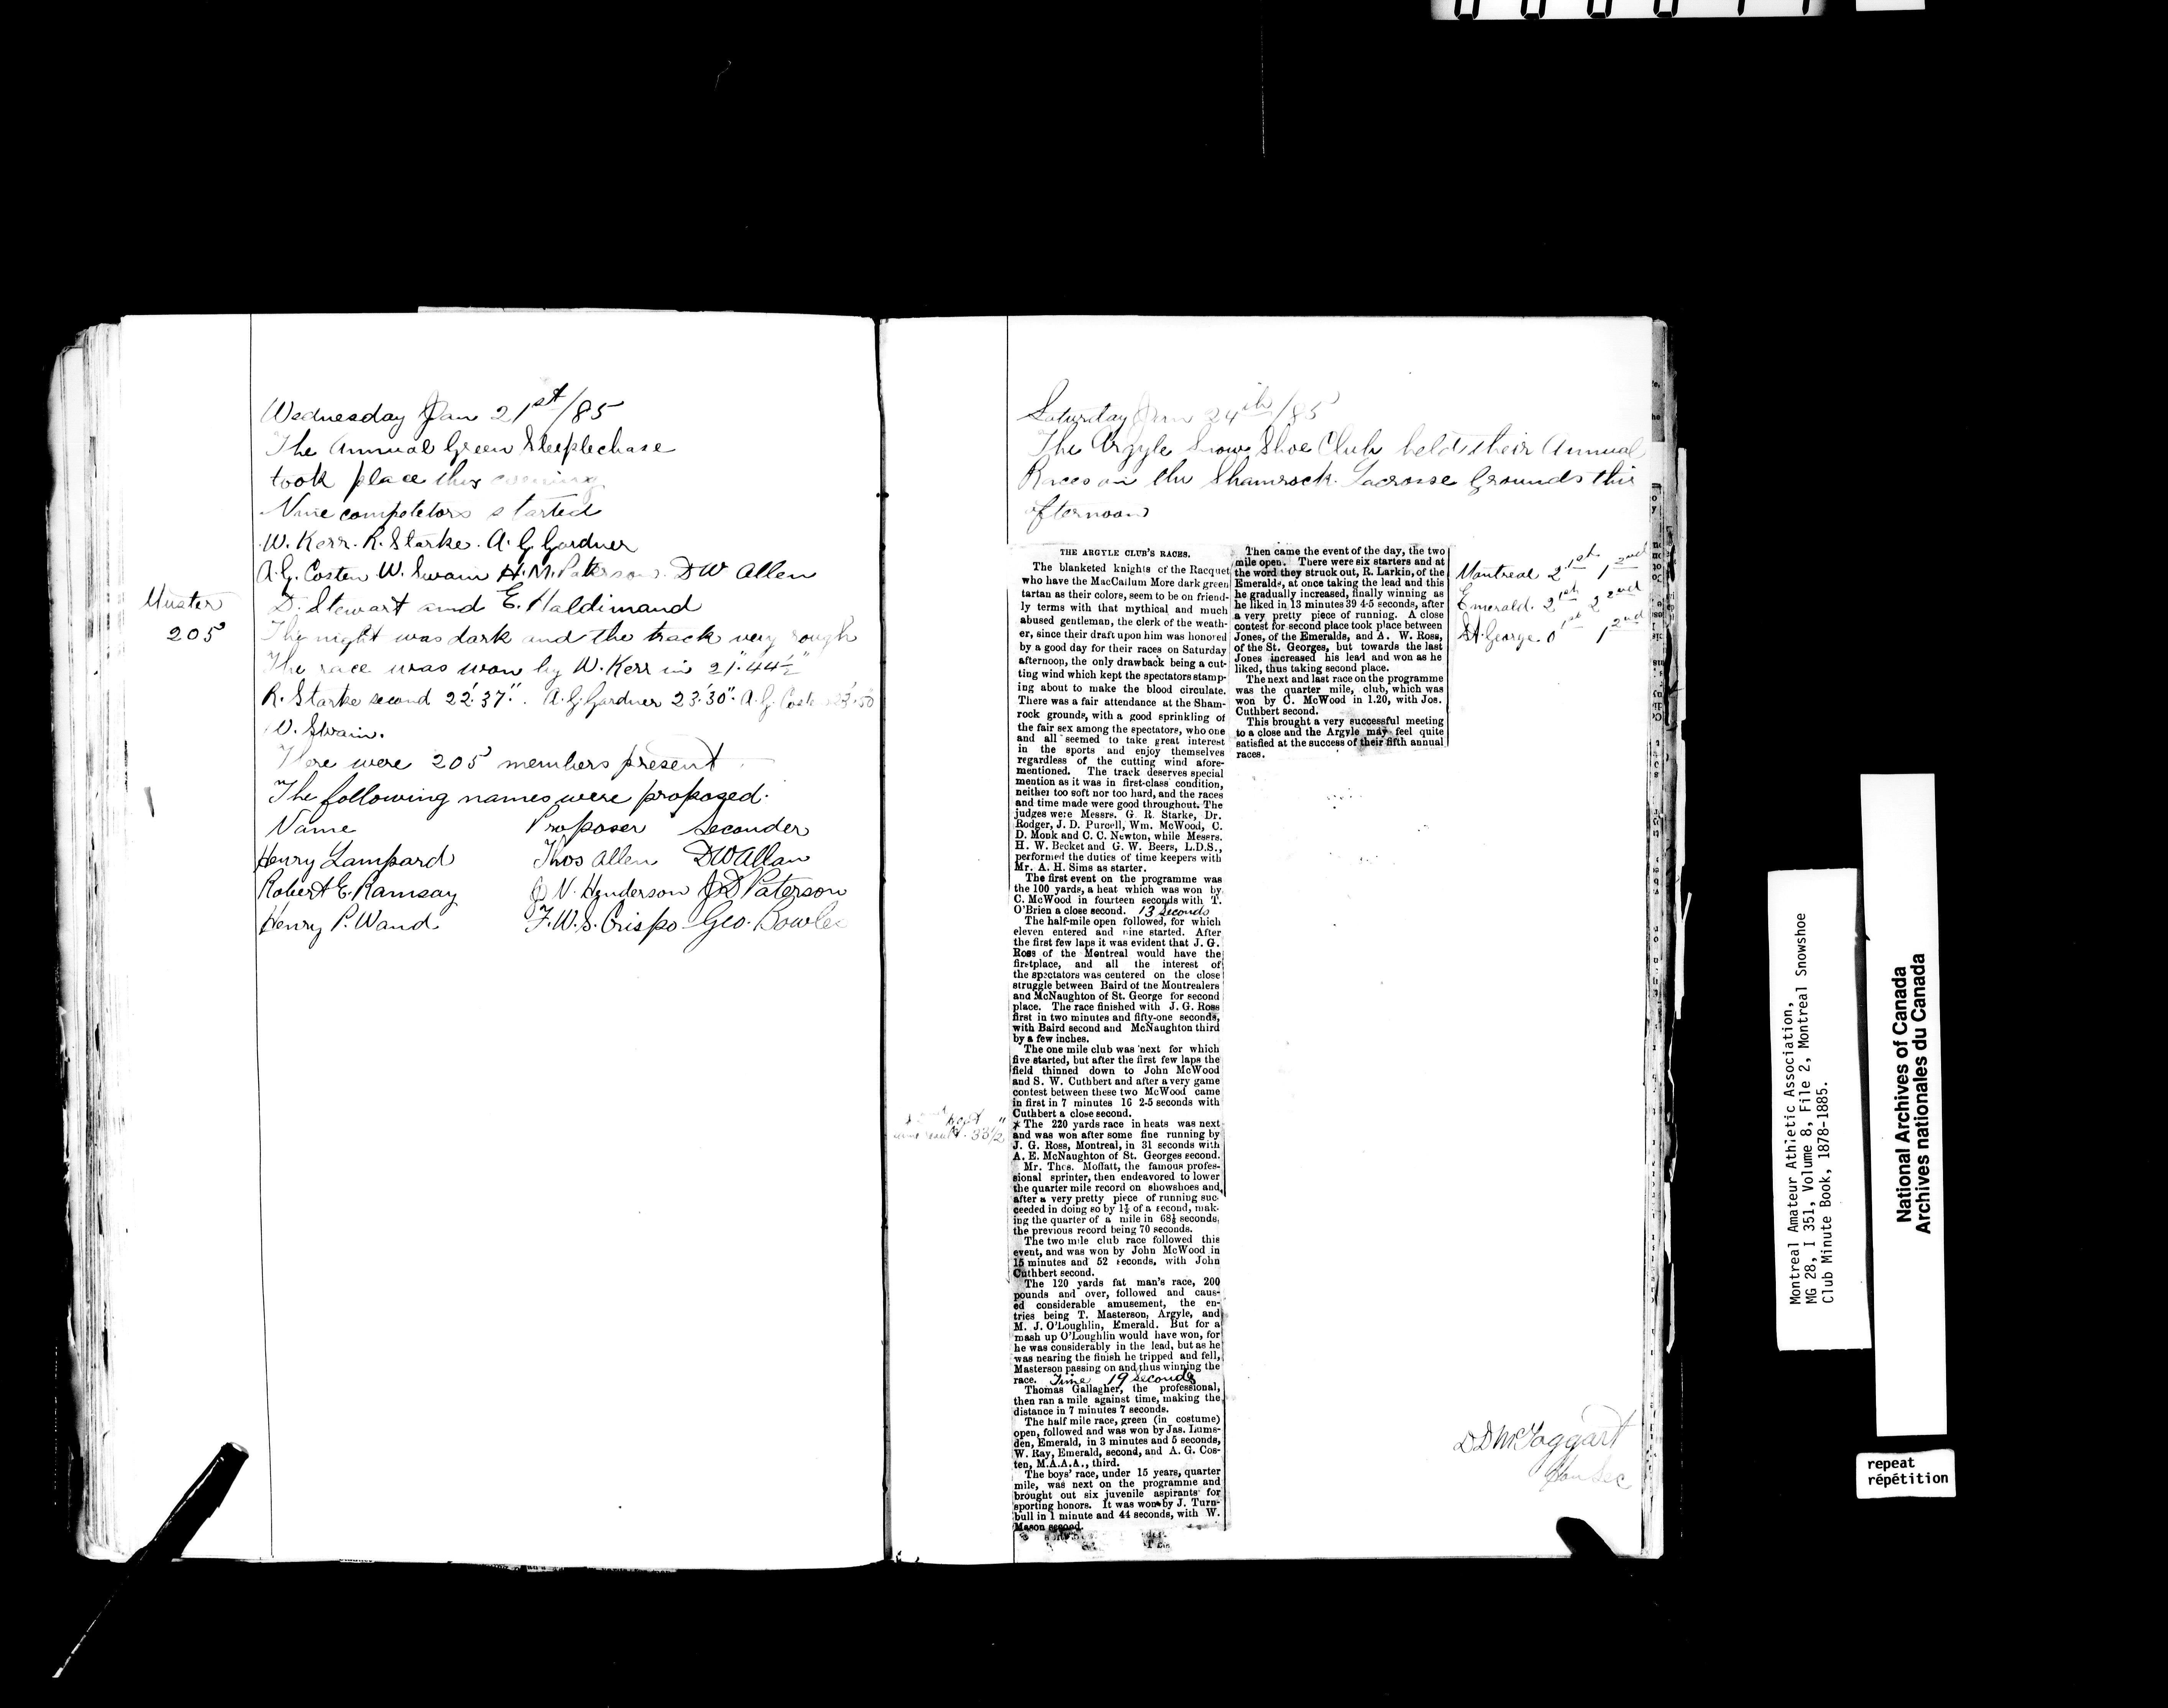 Wednesday Jan 21st/85
The Annual Green Steeplechase
took place this evening
Nine competetors started
W. Kerr. R. Starke. A. G. Gardner
A. G. Costen W. Swain H. M. Paterson. DW Allen
D. Stewart and E. Haldimand
Muster
205
The night was dark and the track very rough
The race was won by W. Kerr in 21".44½"
R. Starke second 22'.37". A. G. Gardner 23'.30". A. G. Cost 23'.50
W. Swain.
There were 205 members present
The following names were proposed.
Name Proposer Seconder
Henry Lampard Thos Allen DW Allan
Robert E. Ramsay J N. Henderson J D Paterson
Henry P. Wand F. W. S. Crispo Geo. Bowles
Saturday Jan 24th/85
The Argyle Snow Shoe Club held their Annual
Races on the Shamrock Lacrosse Grounds this
afternoon
THE ARGYLE CLUB'S RACES.
The blanketed knights of the Racquet
who have the MacCallum More dark green
tartan as their colors, seem to be on friend-
ly terms with that mythical and much
abused gentleman, the clerk of the weath-
er, since their draft upon him was honored
by a good day for their races on Saturday
afternoon, the only drawback being a cut-
ting wind which kept the spectators stamp-
ing about to make the blood circulate.
There was a fair attendance at the Sham-
rock grounds, with a good sprinkling of
the fair sex among the spectators, who one
and all seemed to take great interest
in the sports and enjoy themselves
regardless of the cutting wind afore-
mentioned. The track deserves special
mention as it was in first-class condition,
neither too soft nor too hard, and the races
and time made were good throughout. The
judges were Messrs. G. R. Starke, Dr.
Rodger, J. D. Purcell, Wm. McWood, C.
D. Monk and C. C. Newton, while Messrs.
H. W. Becket and G. W. Beers, L.D.S.,
performed the duties of time keepers with
Mr. A. H. Sims as starter.
The first event on the programme was
the 100 yards, a heat which was won by
C. McWood in fourteen seconds with T.
O'Brien a close second. 13 Seconds
The half-mile open followed, for which
eleven entered and nine started. After
the first few laps it was evident that J. G.
Ross of the Montreal would have the
first place, and all the interest of
the spectators was centered on the close
struggle between Baird of the Montrealers
and McNaughton of St. George for second
place. The race finished with J. G. Ross
first in two minutes and fifty-one seconds,
with Baird second and McNaughton third
by a few inches.
The one mile club was next for which
five started, but after the first few laps the
field thinned down to John McWood
and S. W. Cuthbert and after a very game
contest between these two McWood came
in first in 7 minutes 16 2-5 seconds with
Cuthbert a close second.
33½"
* The 220 yards race in heats was next
and was won after some fine running by
J. G. Ross, Montreal, in 31 seconds with
A. E. McNaughton of St. Georges second.
Mr. Thos. Moffatt, the famous profes-
sional sprinter, then endeavored to lower
the quarter mile record on showshoes and
after a very pretty piece of running suc-
ceeded in doing so by 1½ of a second, mak-
ing the quarter of a mile in 68½ seconds,
the previous record being 70 seconds.
The two mile club race followed this
event, and was won by John McWood in
15 minutes and 52 seconds, with John
Cuthbert second.
The 120 yards fat man's race, 200
pounds and over, followed and caus-
ed considerable amusement, the en-
tries being T. Masterson, Argyle, and
M. J. O'Loughlin, Emerald. But for a
mash up O'Loughlin would have won, for
he was considerably in the lead, but as he
was nearing the finish he tripped and fell,
Masterson passing on and thus winning the
race. Time 19 Seconds
Thomas Gallagher, the professional,
then ran a mile against time, making the
distance in 7 minutes 7 seconds.
The half mile race, green (in costume)
open, followed and was won by Jas. Lums-
den, Emerald, in 3 minutes and 5 seconds,
W. Ray, Emerald, second, and A. G. Cos-
ten, M.A.A.A., third.
The boys' race, under 15 years, quarter
mile, was next on the programme and
brought out six juvenile aspirants for
sporting honors. It was won by J. Turn-
bull in 1 minute and 44 seconds, with W.
Mason second.
Then came the event of the day, the two
mile open. There were six starters and at
the word they struck out, R. Larkin, of the
Emeralds, at once taking the lead and this
he gradually increased, finally winning as
he liked in 13 minutes 39 4-5 seconds, after
a very pretty piece of running. A close
contest for second place took place between
Jones, of the Emeralds, and A. W. Ross,
of the St. Georges, but towards the last
Jones increased his lead and won as he
liked, thus taking second place.
The next and last race on the programme
was the quarter mile, club, which was
won by C. McWood in 1.20, with Jos.
Cuthbert second.
This brought a very successful meeting
to a close and the Argyle may feel quite
satisfied at the success of their fifth annual
races.
Montreal 2 1st 1 2nd
Emerald. 2 1st 2 2nd
St. George. 0 1st 1 2nd
DD McTaggart
Hon Sec
Montreal Amateur Athletic Association,
MG 28, I 351, Volume 8, File 2, Montreal Snowshoe
Club Minute Book, 1878-1885.
National Archives of Canada
Archives nationales du Canada
repeat
répétition